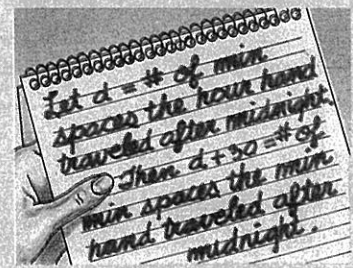 Let d = # of min
spaces the hour hand
traveled after midnight.
Then d + 30 = # of
min spaces the min
hand traveled after
midnight.